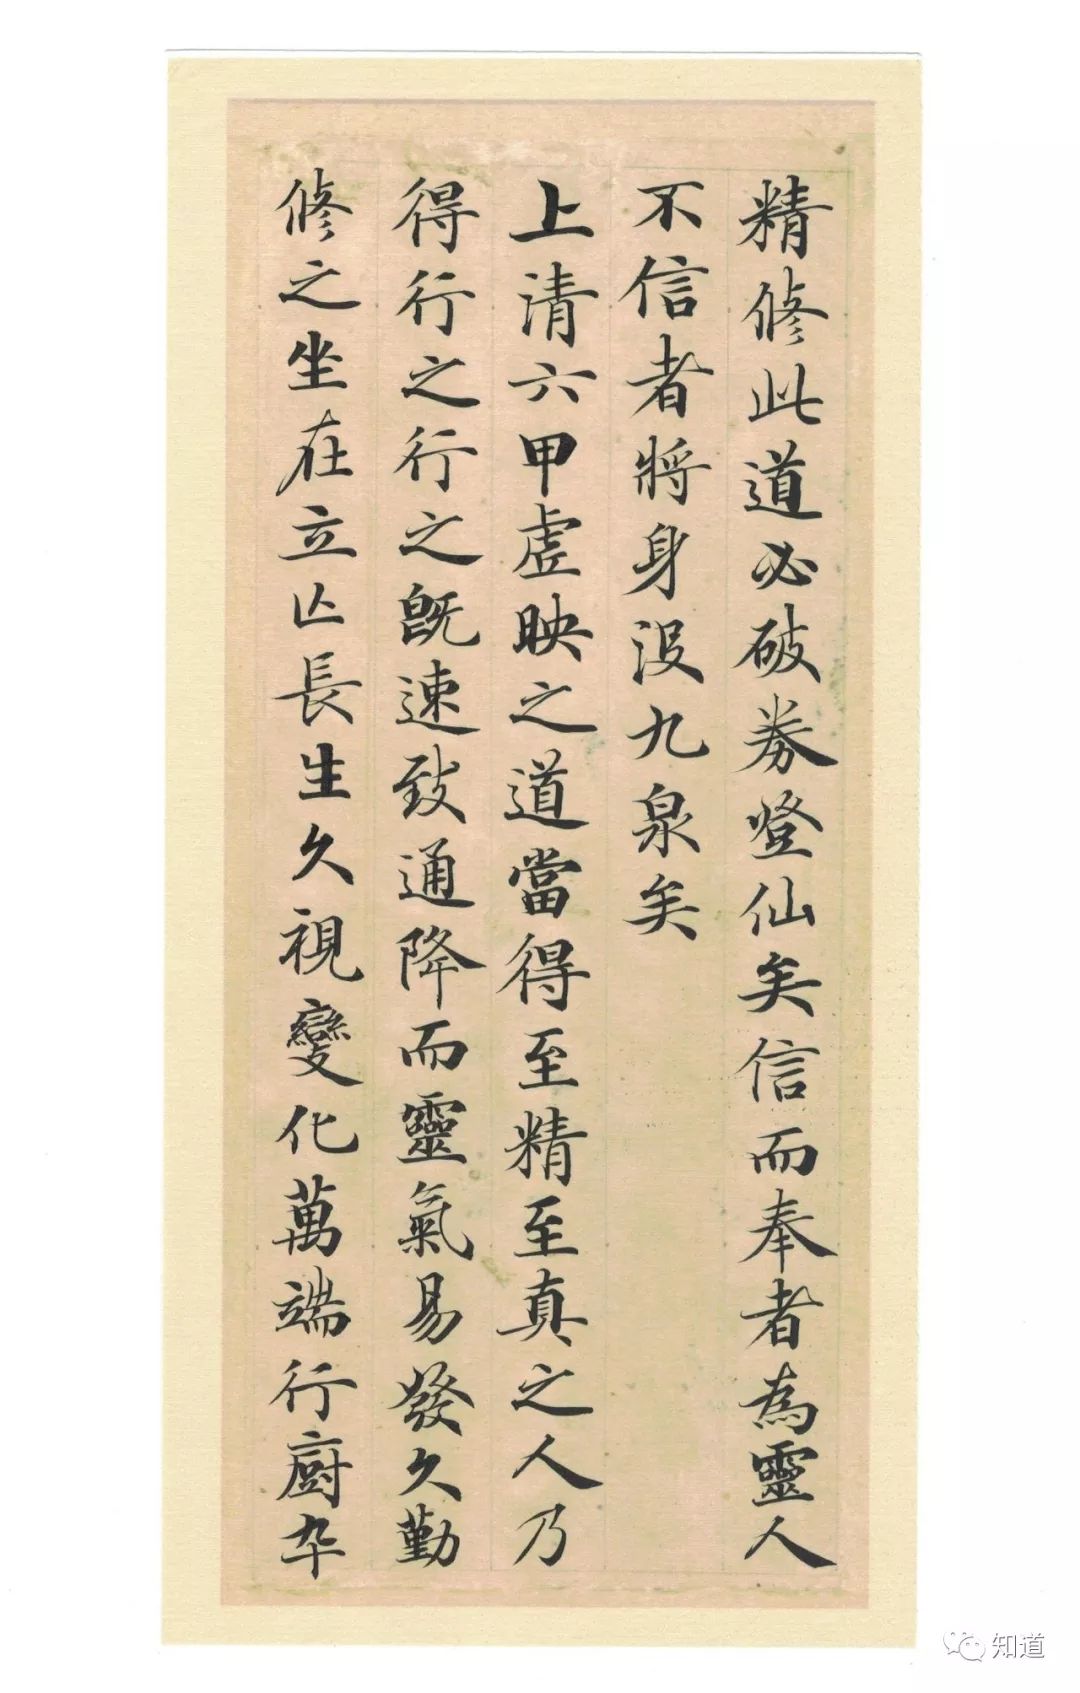 精修此道必破券登仙矣信而奉者為靈人
不信者將身沒九泉矣
上清六甲虛映之道當得至精至真之人乃
得行之行之既速致通降而靈氣易發久勤
修之坐在立亾長生久視變化萬端行廚卒
知道